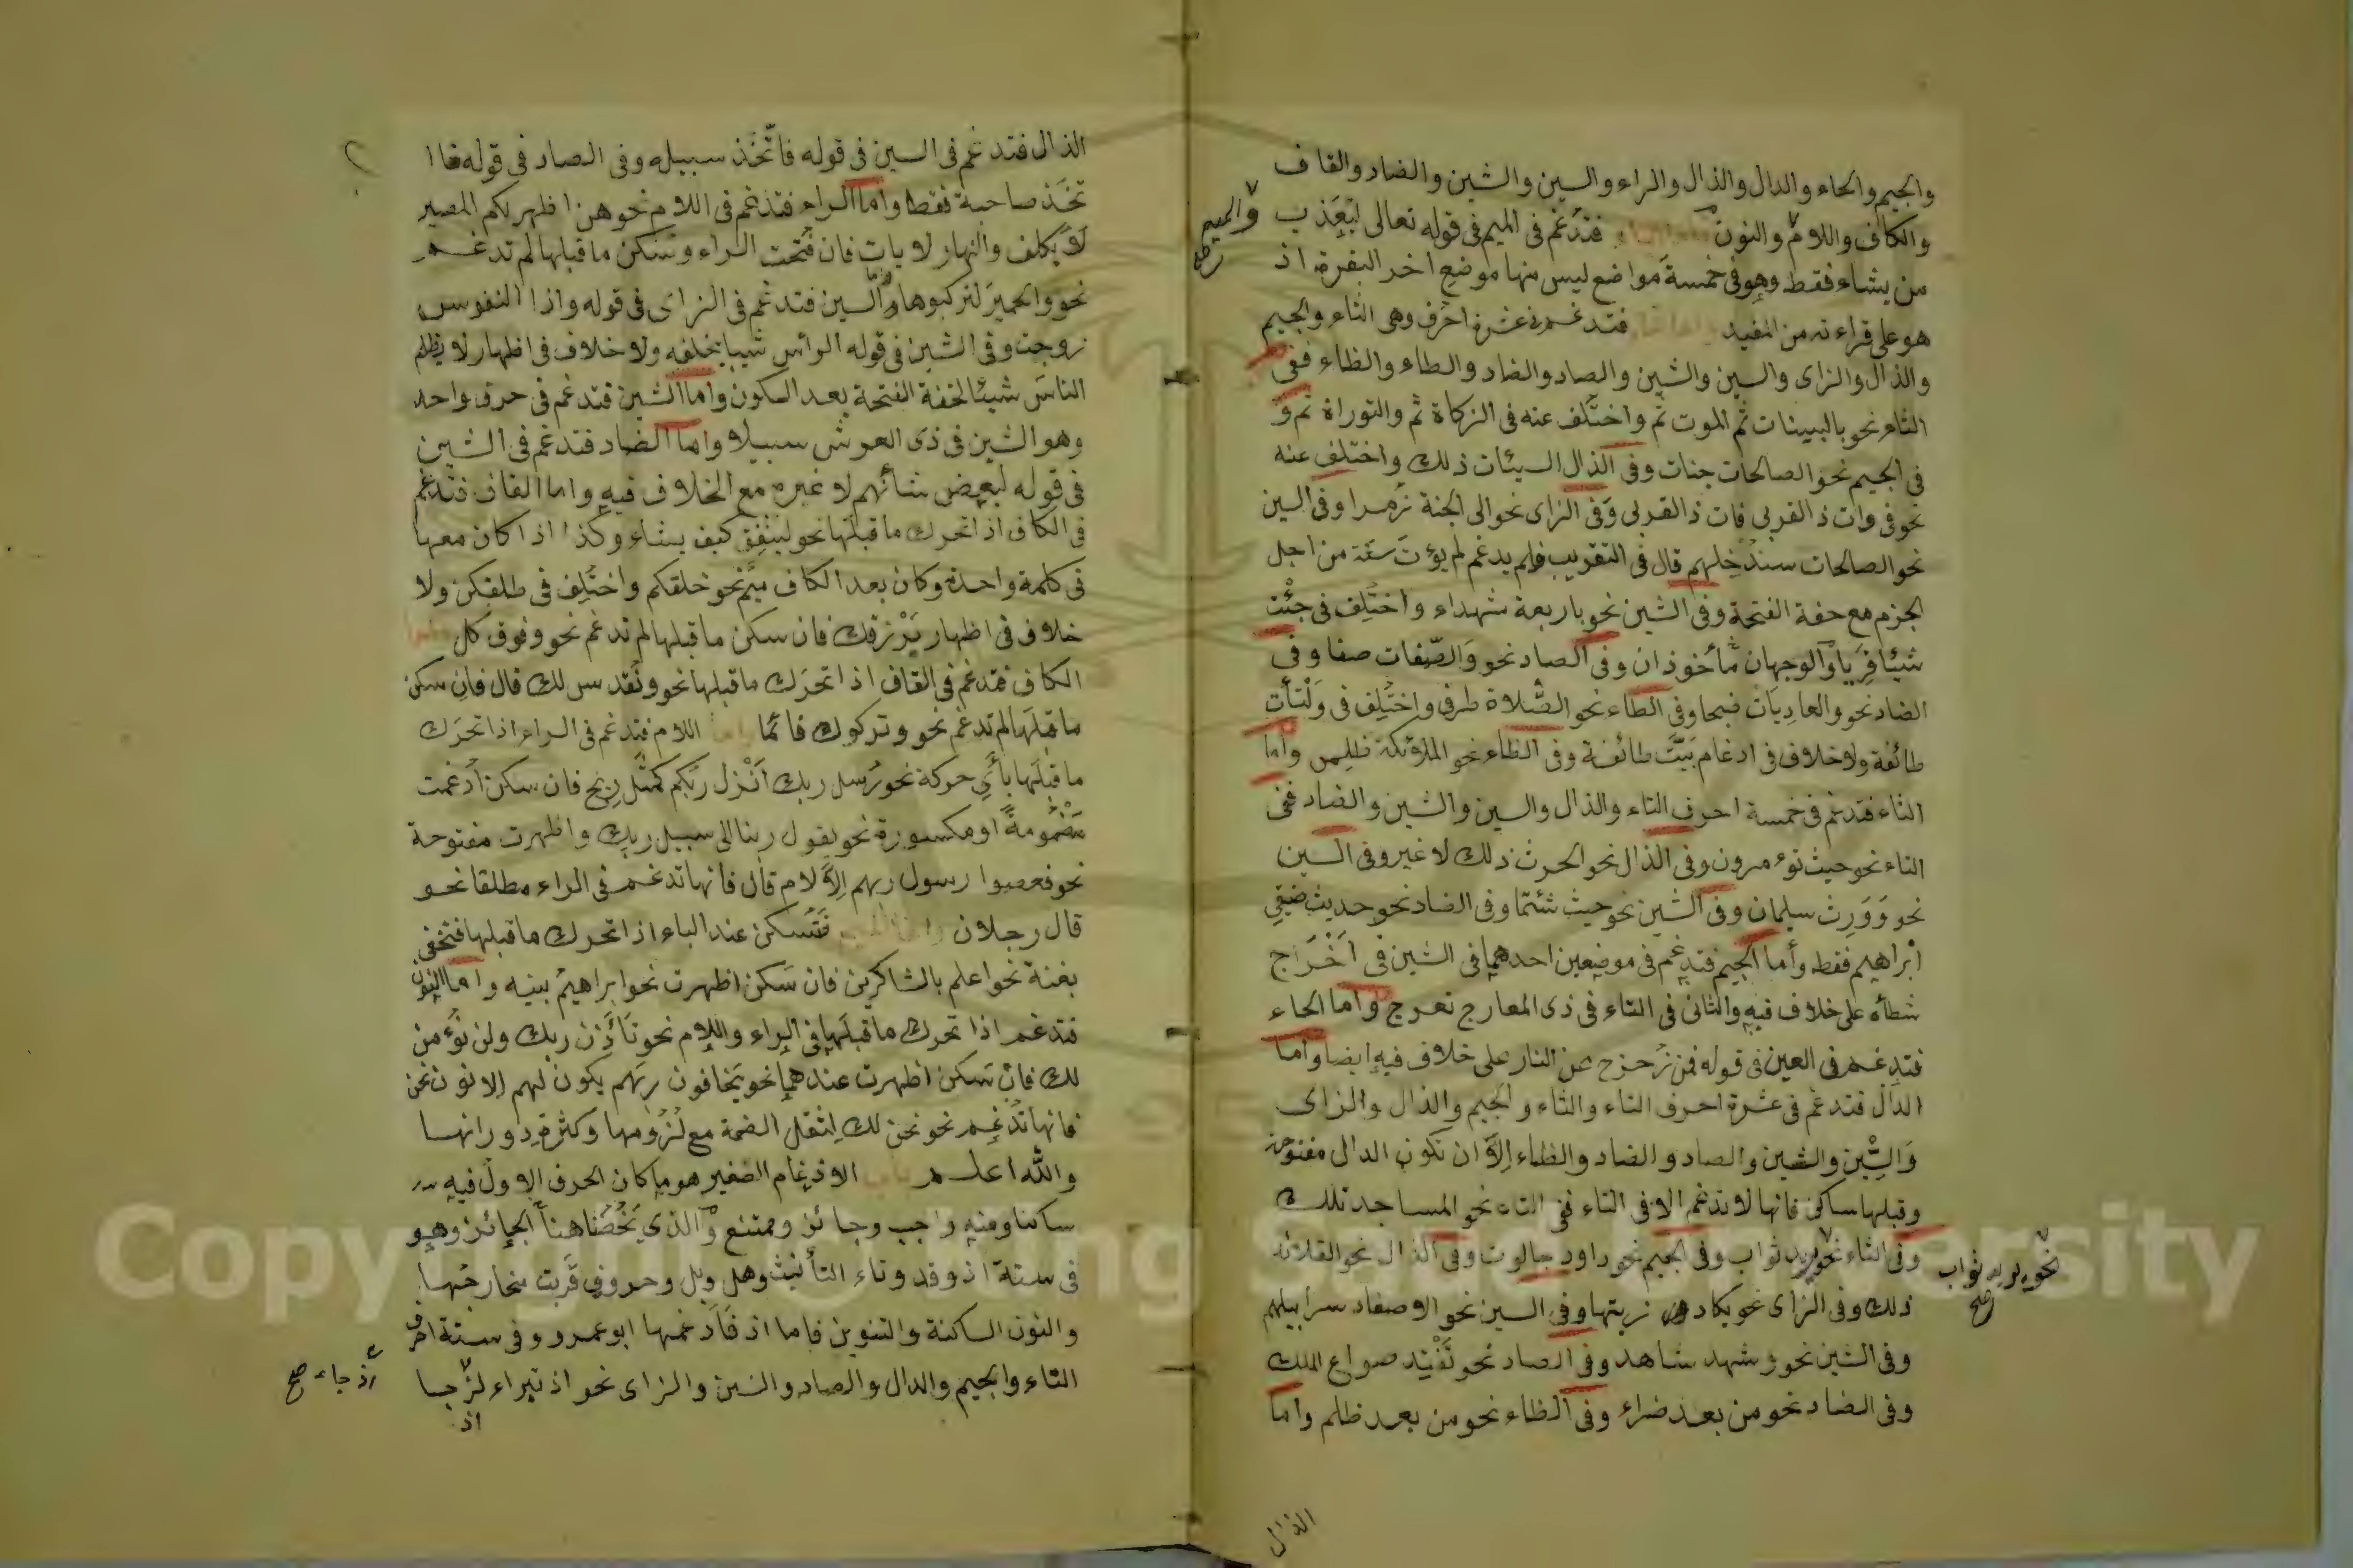 والجيم والحاء والدال والذال والراء والسين والشين والضاد والقاف
والكاف واللام والنون فتدغم في الميم في قوله تعالى يعذب
والميم صح
من يشاء فقط وهو في خمسة مواضع ليس منها موضع اخر البقرة اذ
هو على قراءته من المفيد فتدغم في عشرة احرف وهي الثاء والجيم
والذال والزاى والسين والشين والصاد والضاد والطاء والظاء ففي
الثاء نحو بالبينات ثم الموت ثم واختلف عنه في الزكاة ثم والتوراة ثم و
في الجيم نحو الصالحات جنات وفي الذال السيئات ذلك واختلف عنه
نحو في وات ذ القربى فات ذ القربى وفي الزاى نحو الى الجنة زمرا وفي السين
نحو الصالحات سندخلهم قال في التقريب فلم يدغم لم يؤت سعة من اجل
الجزم مع خفة الفتحة وفي الشين نحو باربعة شهداء واختلف في جئت
شيئا فريا والوجهان مأخوذان وفي الصاد نحو والصفات صفا وفي
الضاد نحو والعاديات ضبحا وفي الطاء نحو الصلاة طرفي واختلف في ولتأت
طائفة ولا خلاف في ادغام بيت طائفة وفي الظاء نحو الملائكة ظلمى واما
الثاء فتدغم في خمسة احرف التاء والذال والسين والشين والضاد ففي
التاء نحو حيث تؤمرون وفي الذال نحو الحرث ذلك لا غير وفي السين
نحو وورث سليمان وفي الشين نحو حيث شئتما وفي الضاد نحو حديث ضيف
ابراهيم فقط وأما الجيم فتدغم في موضعين احدهما في الشين في اخراج
شطأه على خلاف فيه والثاني في التاء في ذى المعارج تعرج واما الحاء
فتدغم في العين في قوله فمن زحزح عن النار على خلاف فيه ايضا واما
الدال فتدغم في عشرة احرف التاء والثاء والجيم والذال والزاى
والسين والشين والصاد والضاد والظاء إلا ان تكون الدال مفتوحة
وقبلها ساكن فانها لا تدغم الا في التاء ففي التاء نحو المساجد تلك
وفي الثاء نحو يريد ثواب وفي الجيم نحو داود جالوت وفي الذال نحو القلائد
نحو يريد ثواب صح
ذلك وفي الزاى نحو يكاد زيتها وفي السين نحو الاصفاد سرابيلهم
وفي الشين نحو وشهد شاهد وفي الصاد نحو نفقد صواع الملك
وفي الضاد نحو من بعد ضراء وفي الظاء نحو من بعد ظلم واما
الذال
الذال فتدغم في السين في قوله فاتخذ سبيله وفي الصاد في قوله ما ا
تخذ صاحبة فقط واما الراء فتدغم في اللام نحو هن اطهر لكم المصير
لا يكلف والنهار لايات فان فتحت الراء وسكن ما قبلها لم تدغم
نحو والحمير لتركبوها واما السين فتدغم في الزاى في قوله واذا النفوس
زوجت وفي الشين في قوله الرأس شيبا بخلفه ولا خلاف في اظهار لا يظلم
الناس شيئا لخفة الفتحة بعد السكون واما الشين فتدغم في حرف واحد
وهو السين في ذى العرش سبيلا واما الضاد فتدغم في الشين
في قوله لبعض شأنهم لا غيره مع الخلاف فيه واما القاف فتدغم
في الكاف اذا تحرك ما قبلها نحو ينفق كيف يشاء وكذا اذا كان معها
في كلمة واحدة وكان بعد الكاف ميم نحو خلقكم واختلف في طلقكن ولا
خلاف في اظهار يرزقك فان سكن ما قبلها لم تدغم نحو وفوق كل
الكاف فتدغم في القاف اذا تحرك ما قبلها نحو ونقدس لك قال فان سكن
ما قبلها لم تدغم نحو وتركوك قائما اللام فتدغم في الراء اذا تحرك
ما قبلها بأي حركة نحو رسل ربك انزل ربكم كمثل ريح فان سكن أدغمت
مضمومة او مكسورة نحو يقول ربنا الى سبيل ربك واظهرت مفتوحة
نحو فعصوا رسول ربهم إلا لام قال فانها تدغم في الراء مطلقا نحو
قال رجلان فتسكن عند الباء اذا تحرك ما قبلها فتخفى
بغنة نحو اعلم بالشاكرين فان سكن اظهرت نحو ابراهيم بنيه واما النون
فتدغم اذا تحرك ما قبلها في الراء واللام نحو تأذن ربك ولن نؤمن
لك فان سكن اظهرت عندهما نحو يخافون ربهم يكون لهم إلا نون نحن
فانها تدغم نحو نحن لك لثقل الضمة مع لزومها وكثرة دورانها
والله اعلم باب الادغام الصغير هو ما كان الحرف الاول فيه
ساكنا ومنه واجب وجائز وممتنع والذي يخصنا هنا الجائز وهو
في ستة اذ وقد وتاء التأنيث وهل وبل وحروف قربت مخارجها
والنون الساكنة والتنوين فاما اذ فأدغمها ابو عمرو في ستة احرف
التاء والجيم والدال والصاد والسين والزاى نحو اذ تبراء
اذ جاء صح
اذ
Copyright © King Saud University